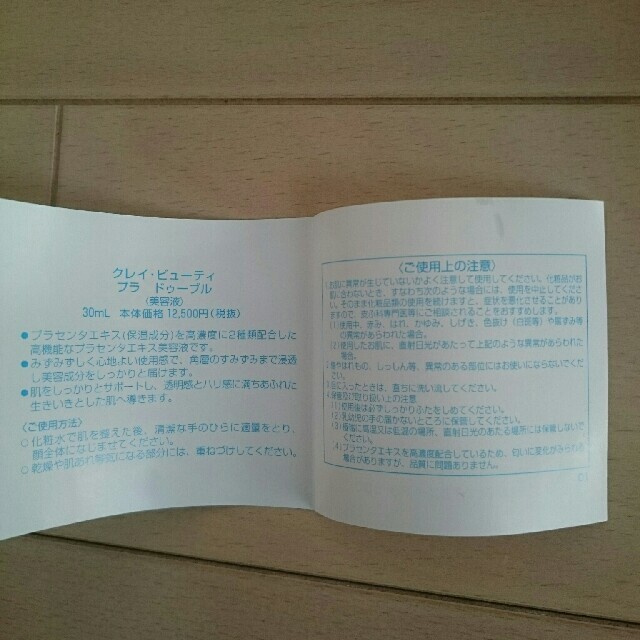 クレイ・ビューティ
プラ ドゥーブル
(美容液)
30mL 本体価格 12,500円(税抜)
●プラセンタエキス(保湿成分)を高濃度に2種類配合した
高機能なプラセンタエキス美容液です。
●みずみずしく心地よい使用感で、角層のすみずみまで浸透
し美容成分をしっかりと届けます。
●肌をしっかりとサポートし、透明感とハリ感に満ちあふれた
生きいきとした肌へ導きます。
〈ご使用方法〉
○化粧水で肌を整えた後、清潔な手のひらに適量をとり、
顔全体になじませてください。
○乾燥や肌あれ等気になる部分には、重ねづけしてください。
〈ご使用上の注意〉
お肌に異常が生じていないかよく注意して使用してください。化粧品がお
肌に合わないとき、即ち次のような場合には、使用を中止してくだ
化粧品類の使用を続けますと、症状を悪化させることがあり
ますので、皮ふ科専門医等にご相談されることをおすすめします。
(1)使用中、赤み、はれ、かゆみ、しげき、色抜け(白斑等)や黒ずみ等
の異常があらわれた場合。
(2)使用したお肌に、直射日光があたって上記のような異常があらわれた
場合。
傷やはれもの、しっしん等、異常のある部位にはお使いにならないでくだ
に入ったときは、直ちに洗い流してください。
保管及び取り扱い上の注意
(1)使用後は必ずしっかりふたをしめてください。
(2)乳幼児の手の届かないところに保管してください。
(3)極端に高温又は低温の場所、直射日光のあたる場所には保管しないで
ください。
プラセンタエキスを高濃度配合しているため、匂いに変化がみられる
場合がありますが、品質に問題ありません。